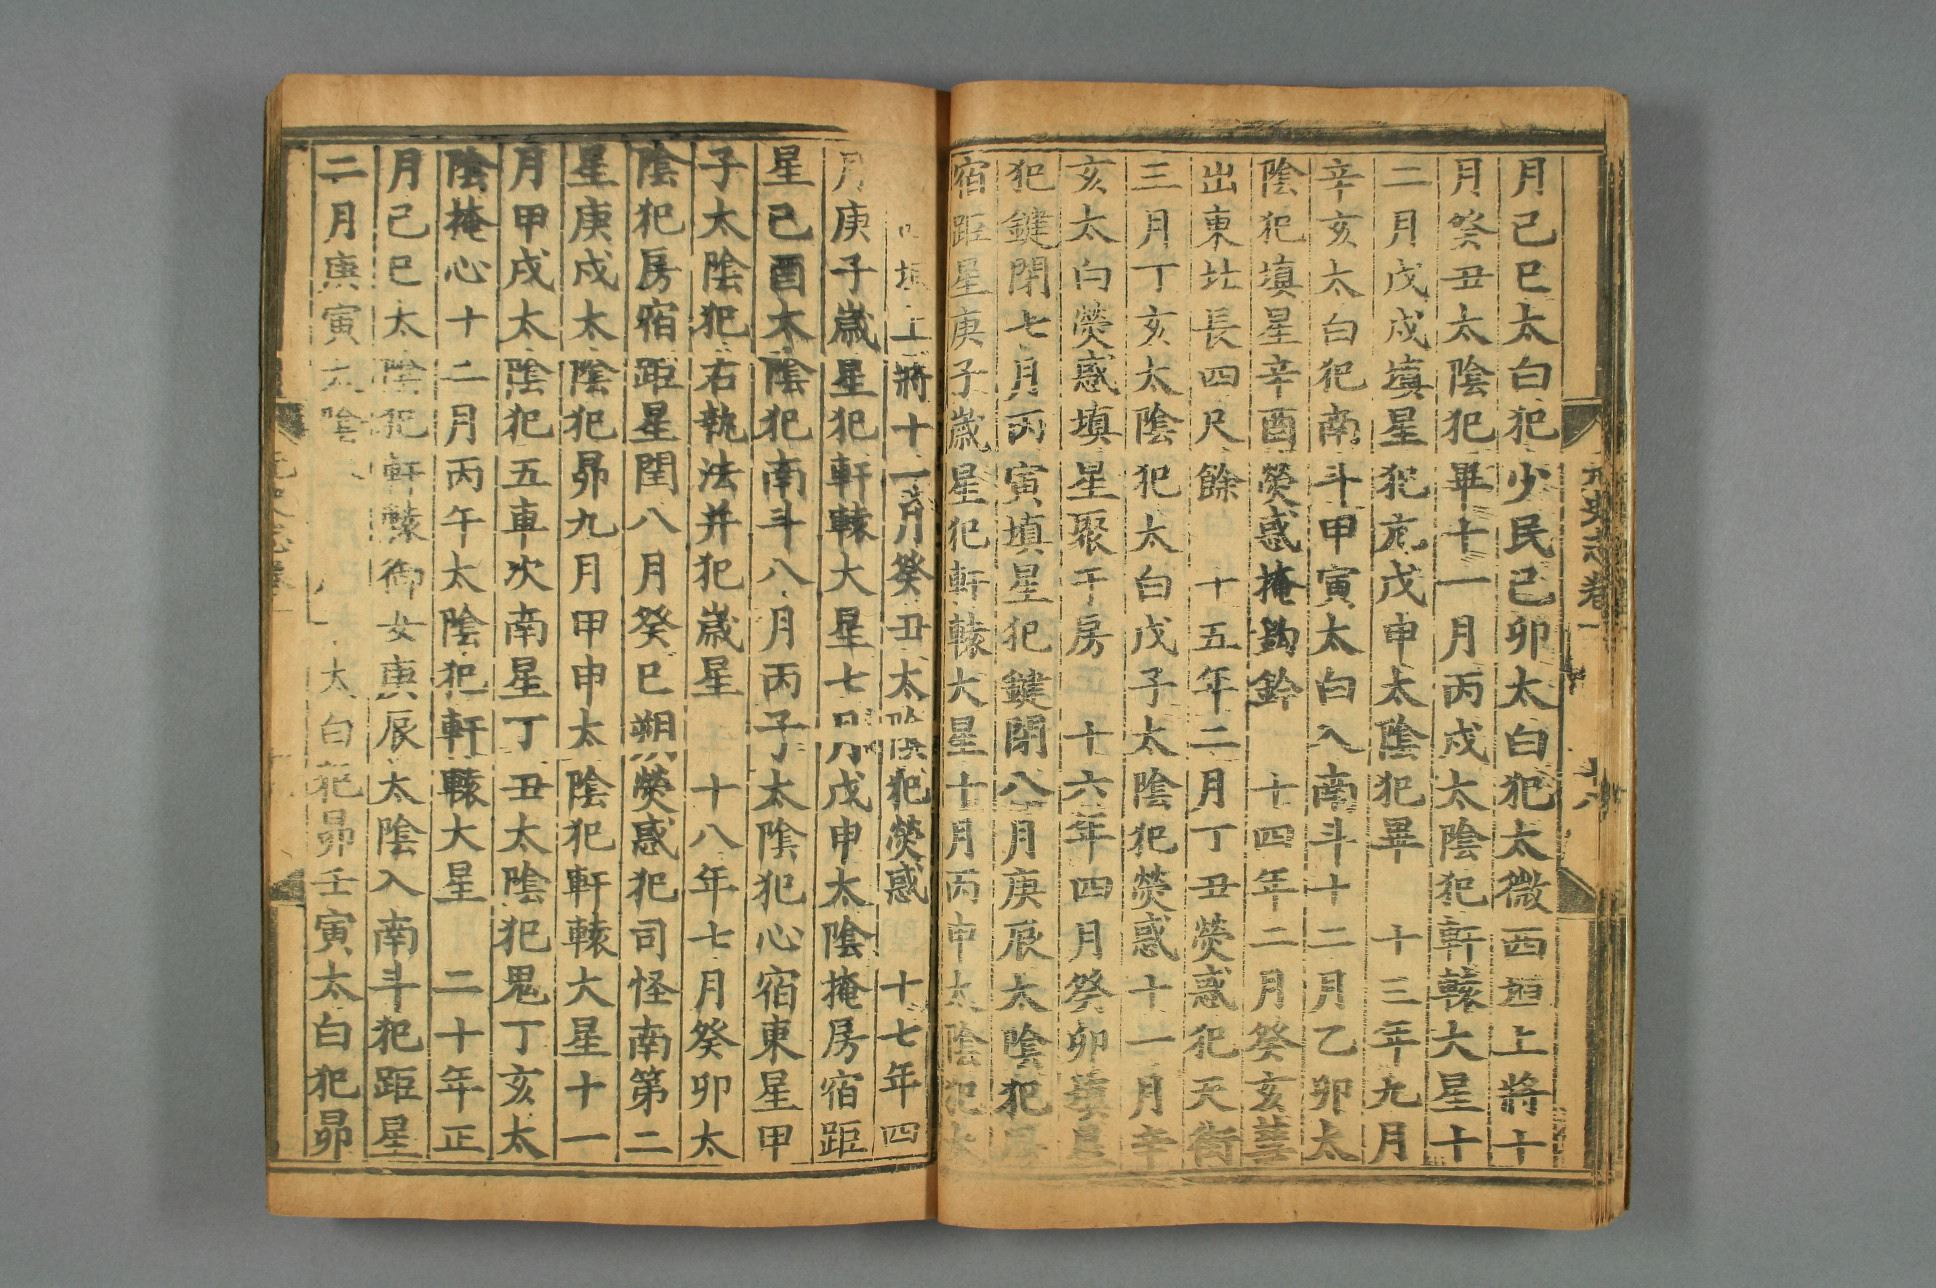 月己巳太白犯少民己卯太白犯太微西垣上將十
月癸丑太陰犯畢十一月丙戌太陰犯軒轅大星十
二月戊戌塡星犯亢戊申太陰犯畢 十三年九月
辛亥太白犯南斗甲寅太白入南斗十二月乙卯太
陰犯塡星辛酉熒惑掩鈎鈐 十四年二月癸亥彗
出東北長四尺餘 十五年二月丁丑熒惑犯天街
三月丁亥太陰犯太白戊子太陰犯熒惑十一月辛
亥太白熒惑塡星聚于房 十六年四月癸卯塡星
犯鍵閉七月丙寅塡星犯鍵閉八月庚辰太陰犯房
宿距星庚子歲星犯軒轅大星十月丙申太陰犯太
垣上將十一月癸丑太陰犯熒惑 十七年四
月庚子歲星犯軒轅大星七月戊申太陰掩房宿距
星己酉太陰犯南斗八月丙子太陰犯心宿東星甲
子太陰犯右執法并犯歲星 十八年七月癸卯太
陰犯房宿距星閏八月癸巳朔熒惑犯司怪南第二
星庚戌太陰犯昴九月甲申太陰犯軒轅大星十一
月甲戌太陰犯五車次南星丁丑太陰犯鬼丁亥太
陰掩心十二月丙午太陰犯軒轅大星 二十年正
月己巳太陰犯軒轅御女庚辰太陰入南斗犯距星
二月庚寅太陰 太白犯昴壬寅太白犯昴
元史志卷一 廿八